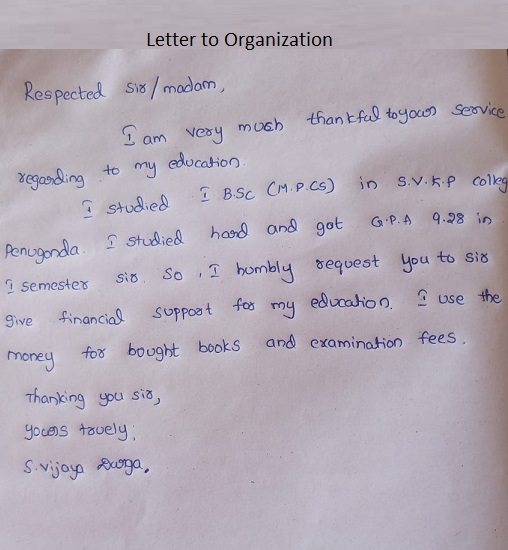 Letter to Organization
Respected sir/madam,
I am very much thankful to your service
regarding to my education.
I studied I B.SC (M.P.CS) in S.V.K.P colleg
Penugonda. I studied hard and got G.P.A 9.28 in
I semester sir. So, I humbly request you to sir
give financial support for my education. I use the
money for bought books and examination fees.
Thanking you sir,
yours truely,
S.vijaya Durga.